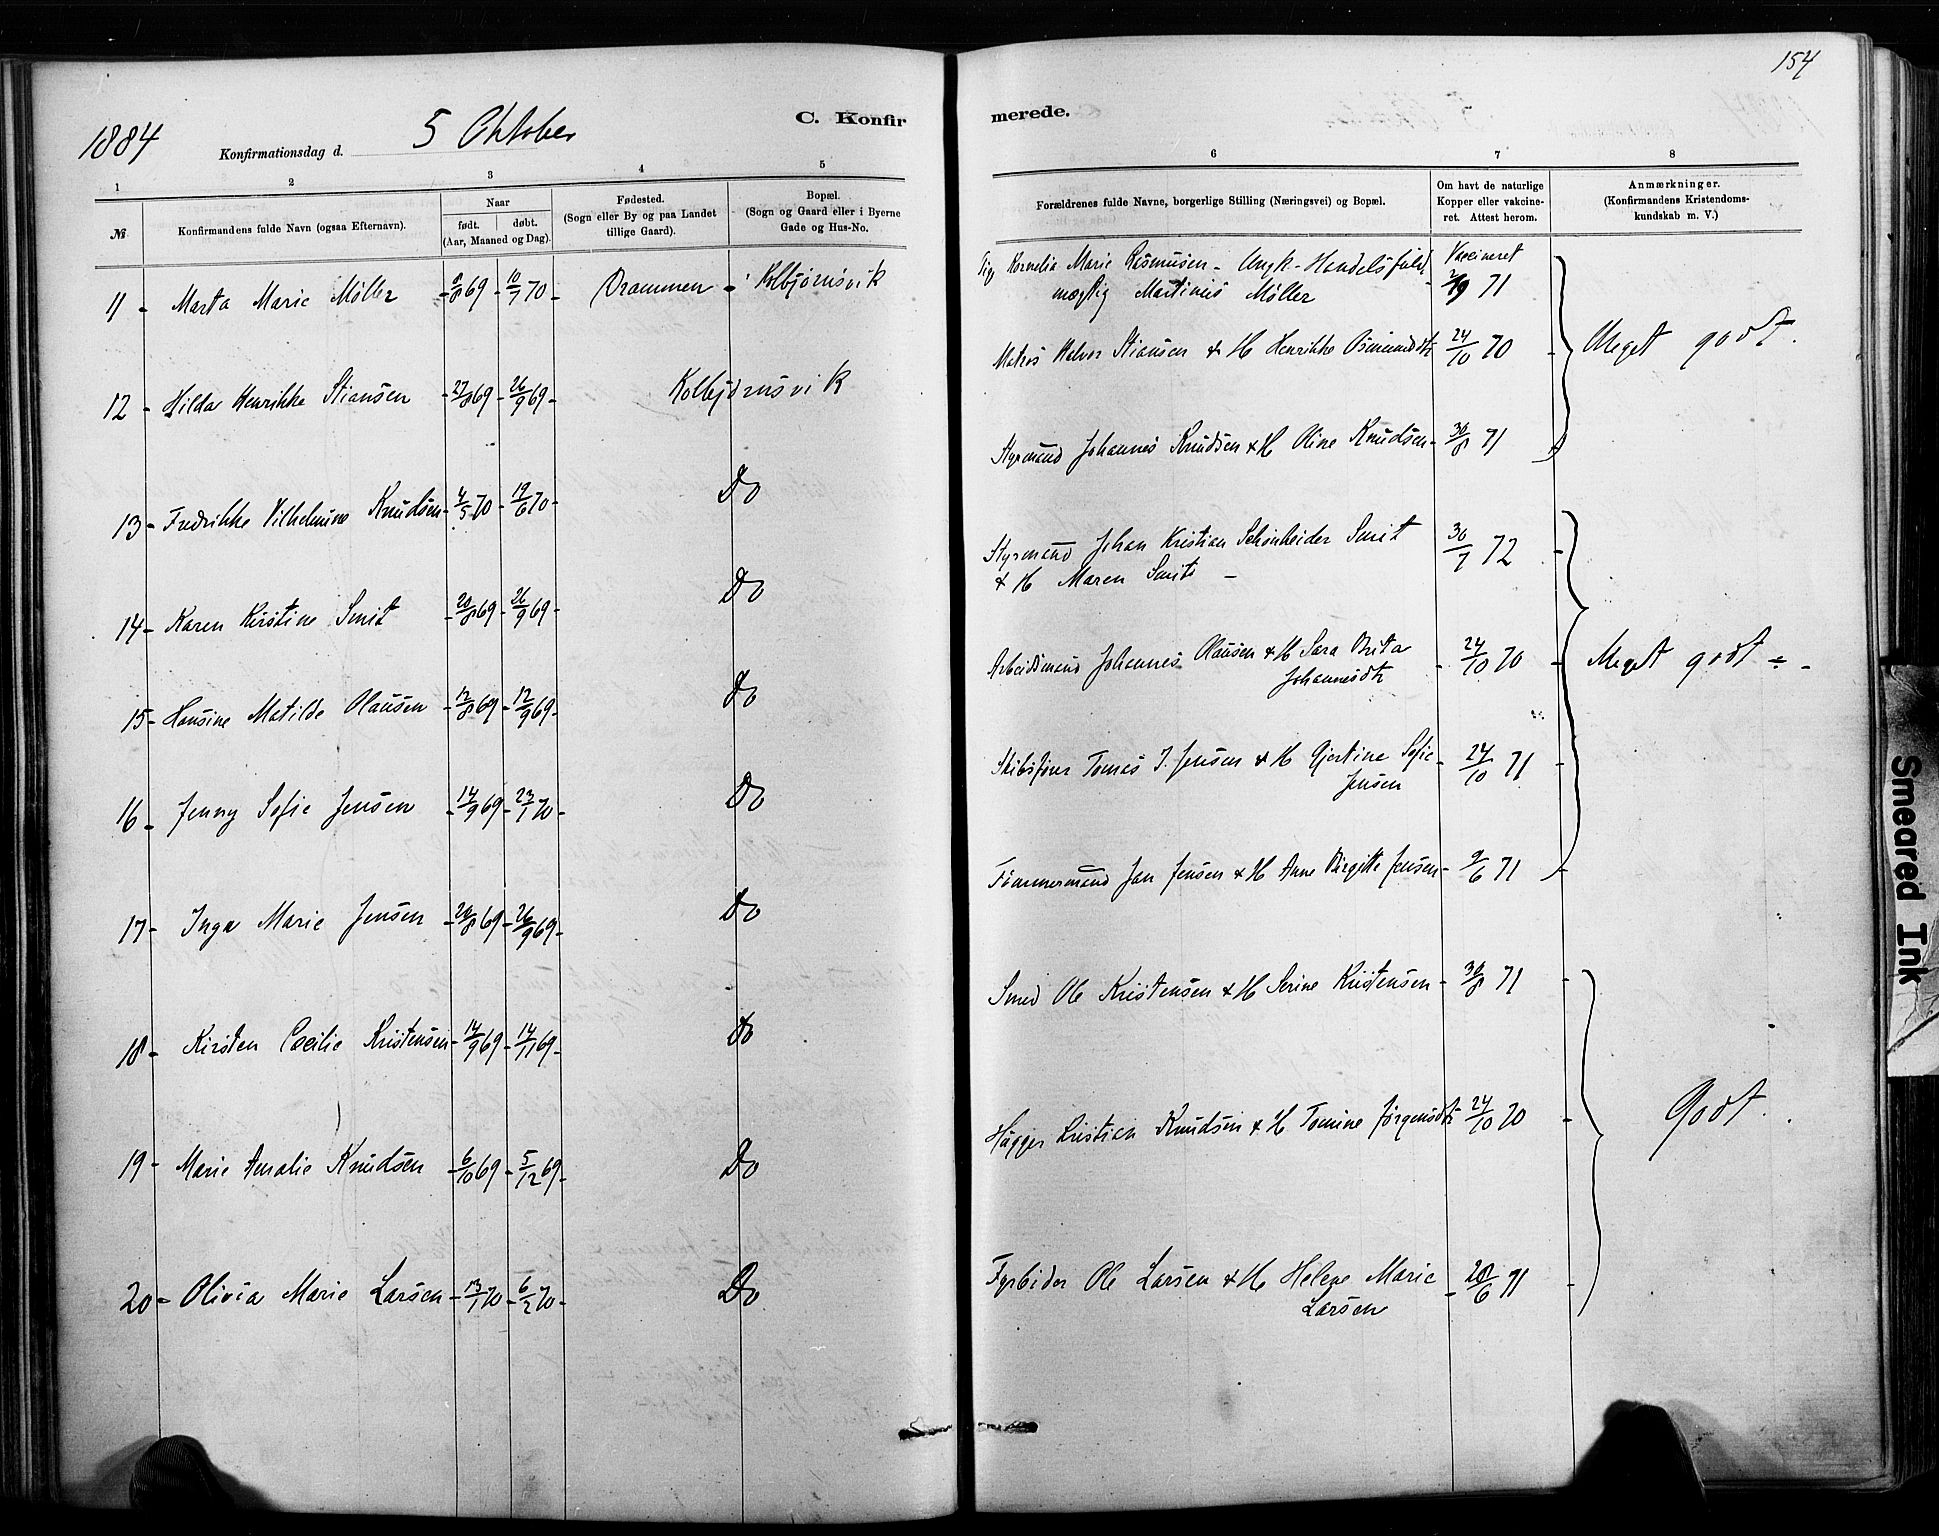 154
1884
Konfirmationsdag d. 5 Oktober
C. Konfir
merede.
1 2 3 4 5 6 7 8
№
Konfirmandens fulde Navn (ogsaa Efternavn).
Naar
født. døbt.
(Aar, Maaned og Dag).
Fødested.
(Sogn eller By og paa Landet
tillige Gaard).
Bopæl.
(Sogn og Gaard eller i Byerne
Gade og Hus-No.
Forældrenes fulde Navne, borgerlige Stilling (Næringsvei) og Bopæl.
Om havt de naturlige
Kopper eller vakcine-
ret. Attest herom.
Anmærkninger.
(Konfirmandens Kristendoms-
kundskab m. V.)
11 - Marta Marie Møller - 8/8 69 - 10/7 70 - Drammen - Kolbjørnsvik
12 - Hilda Henrikke Stiansen - 27/8 69 - 26/9 69 - Kolbjørnsvik
13 - Fredrikke Vilhelmine Knudsen - 4/5 70 - 19/6 70 - Do
14 - Karen Kirstine Smit - 20/8 69 - 26/9 69 - Do
15 - Hansine Matilde Olausen - 12/8 69 - 12/9 69 - Do
16 - Jenny Sofie Jensen - 14/9 69 - 23/1 70 - Do
17 - Inga Marie Jensen - 28/8 69 - 26/9 69 - Do
18 - Kirsten Cecilie Kristensen - 14/9 69 - 14/11 69 - Do
19 - Marie Amalie Knudsen - 6/10 69 - 5/12 69 - Do
20 - Olivia Marie Larsen - 13/1 70 - 6/2 70 - Do
Pige Kornelia Marie Rasmusen - Ungk - Handelsfuld- Vaccineret
mægtig Martinius Møller 2/9 71
Matros Halvor Stiansen & H Henrikke Osmundsdtr 24/10 70 - Meget godt.
Styrmand Johannes Knudsen & H Oline Knudsen - 30/8 71
Styrmand Johan Kristian Schönheider Smit 30/7 72 -
& H Maren Smit -
Arbeidsmand Johannes Olausen & H Sara Brita - 24/10 70 - Meget godt -
Johannesdtr
Skibsfører Tomas J. Jensen & H Gjertine Sofie - 24/10 71 -
Jensen
Tømmermand Jan Jensen & H Anne Birgitte Jensen - 9/6 71 -
Smed Ole Kristensen & H Serine Kristensen - 30/8 71 -
Hugger Kristian Knudsen & H Tomine Jørgensdtr 24/10 70 - Godt.
Fyrbøder Ole Larsen & H Helene Marie - 28/6 71 -
Larsen
Smeared Ink